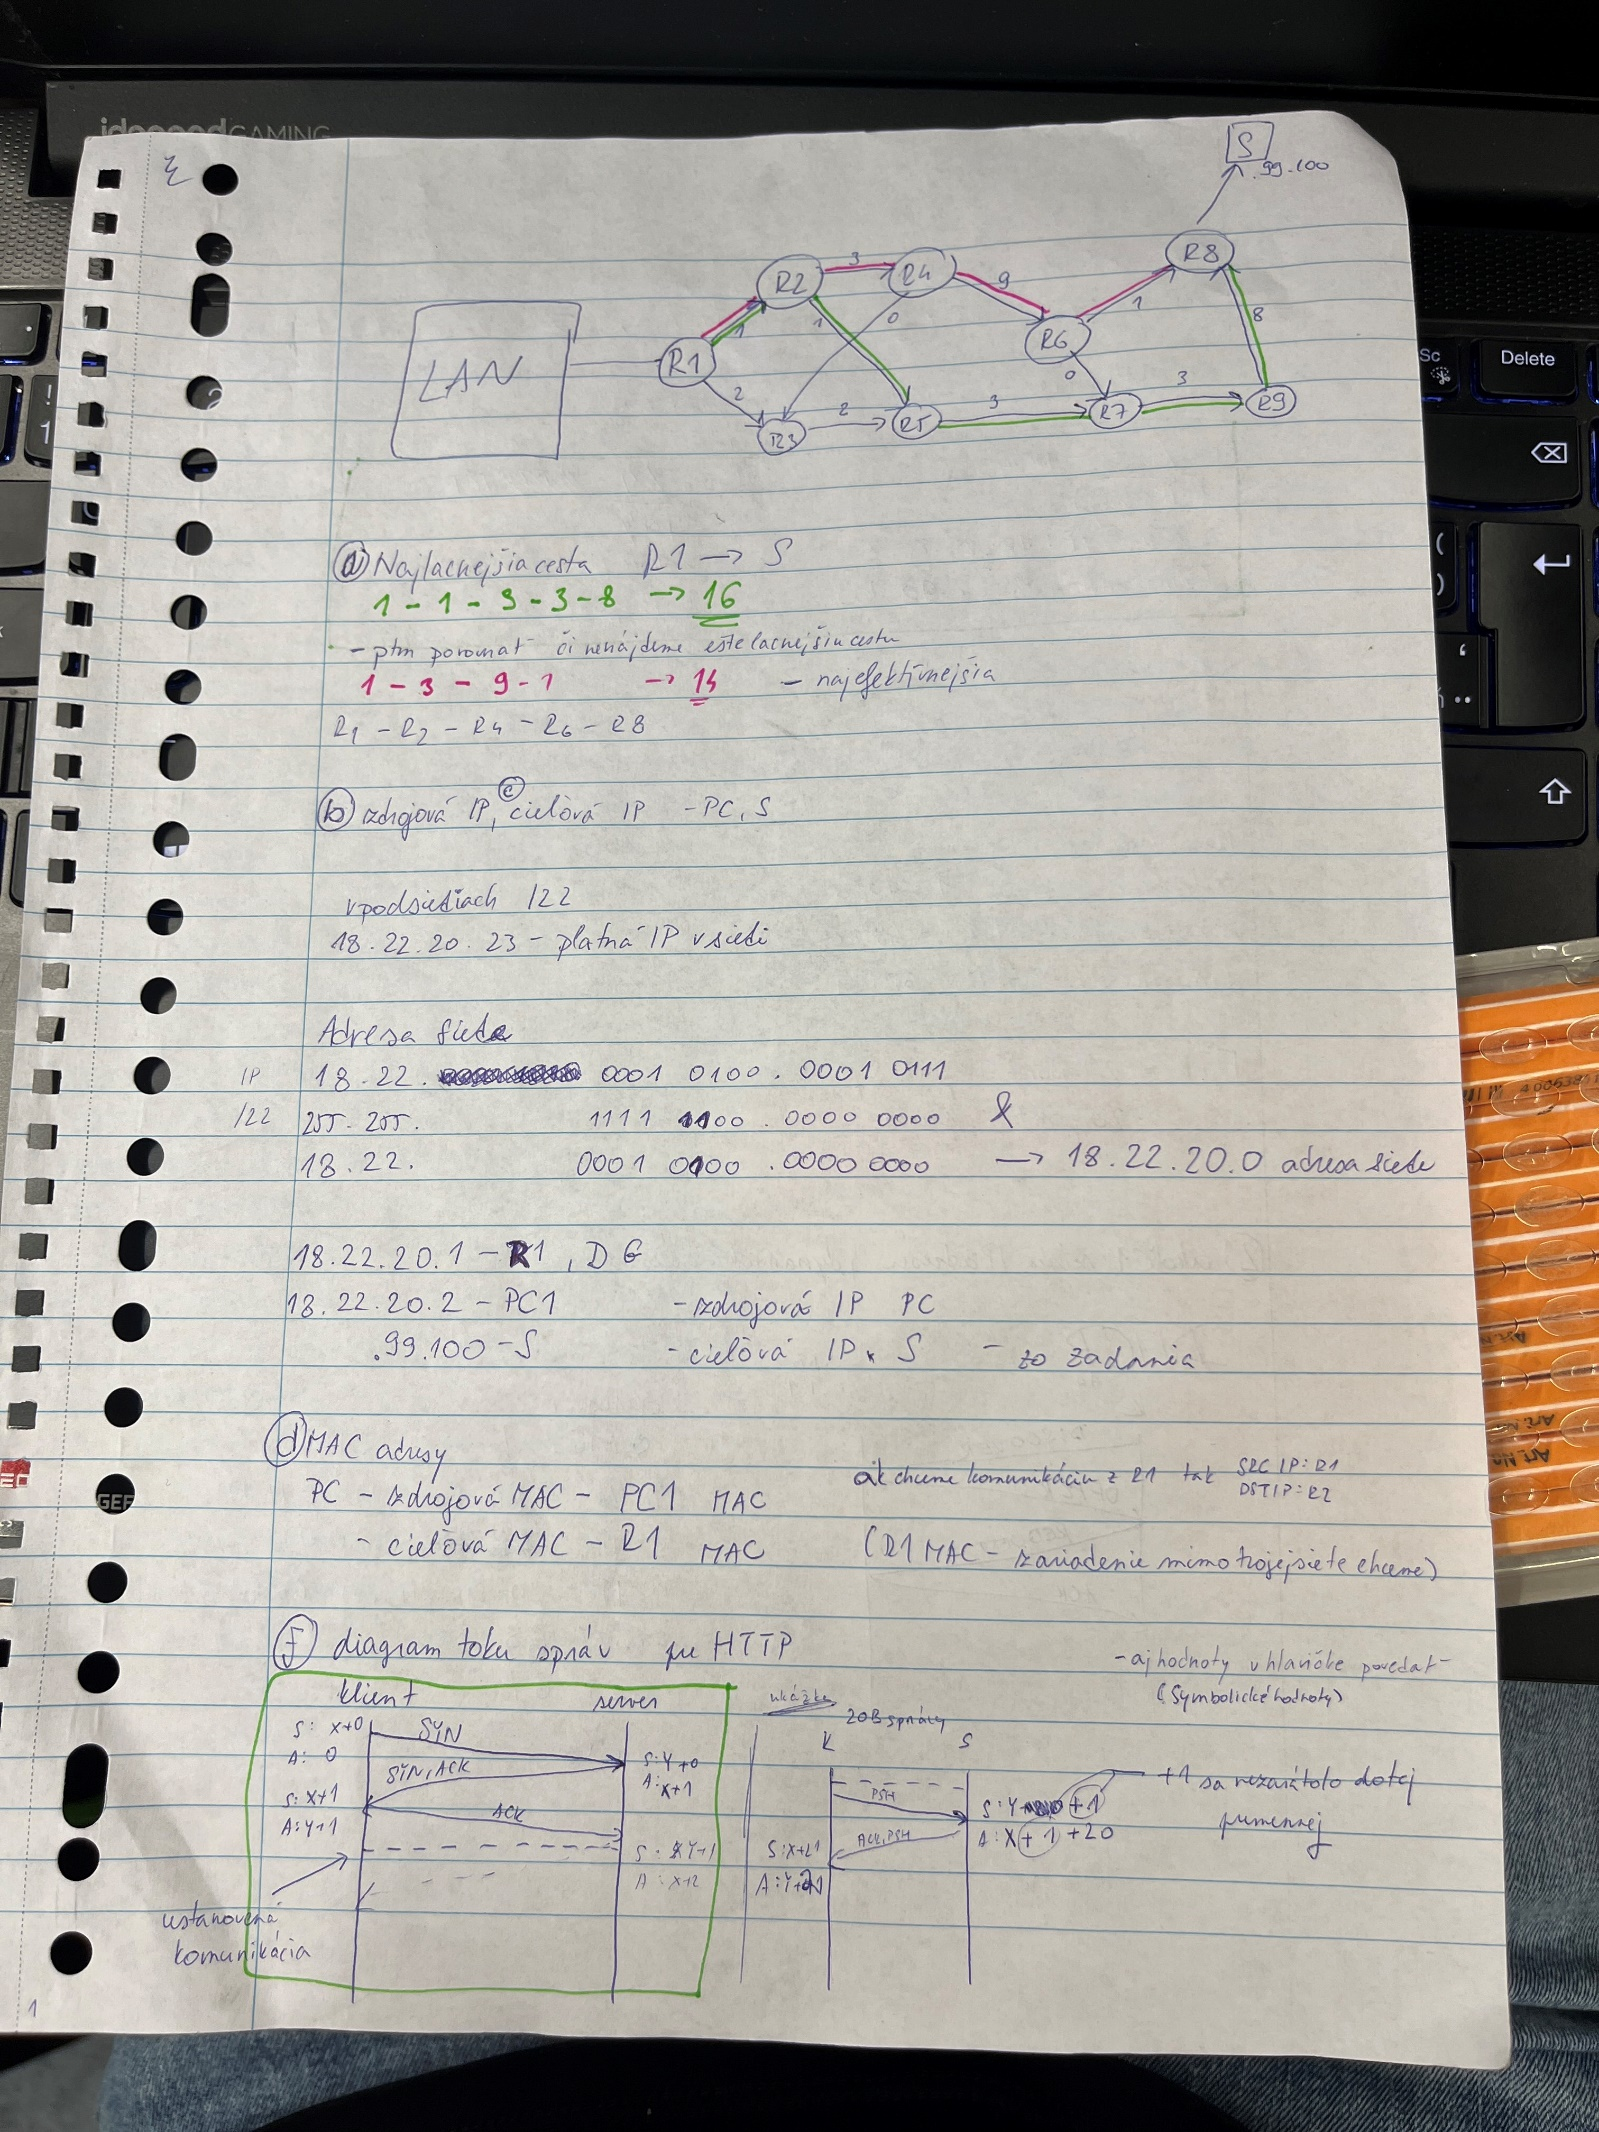 ideapad GAMING
S
.99.100
R8
R2
3
R4
9
R6
1
8
LAN
R1
1
1
0
0
2
R3
2
R5
3
R7
3
R9
Sc
Delete
a) Najlacnejšia cesta R1 → S
1 - 1 - 3 - 3 - 8 → 16
- ptm porovnať či nenájdeme ešte lacnejšiu cestu
1 - 3 - 9 - 1 → 14 - najefektívnejšia
R1 - R2 - R4 - R6 - R8
b) zdrojová IP, c) cieľová IP - PC, S
v podsieťiach /22
18.22.20.23 - platná IP v sieti
Adresa siete
IP 18.22. 0001 0100 . 0001 0111
/22 255.255. 1111 1100 . 0000 0000 &
18.22. 0001 0100 . 0000 0000 → 18.22.20.0 adresa siete
18.22.20.1 - R1, DG
18.22.20.2 - PC1 - zdrojová IP PC
.99.100 - S - cieľová IP S - zo zadania
d) MAC adresy
PC - zdrojová MAC - PC1 MAC
ak chceme komunikáciu z R1 tak SRC IP: R1
DST IP: R2
- cieľová MAC - R1 MAC (R1 MAC - zariadenie mimo tvojej siete chceme)
f) diagram toku správ pre HTTP
- aj hodnoty v hlavičke povedať
(symbolické hodnoty)
klient server
S: X+0
A: 0
SYN
SYN, ACK
S: Y+0
A: X+1
S: X+1
A: Y+1
ACK
S: Y+1
A: X+2
ustanovená
komunikácia
ukážka
20B správy
K S
PSH
S: Y +1
A: X+1+20
ACK, PSH
S: X+21
+1 sa nezaráta do tej
premennej
1